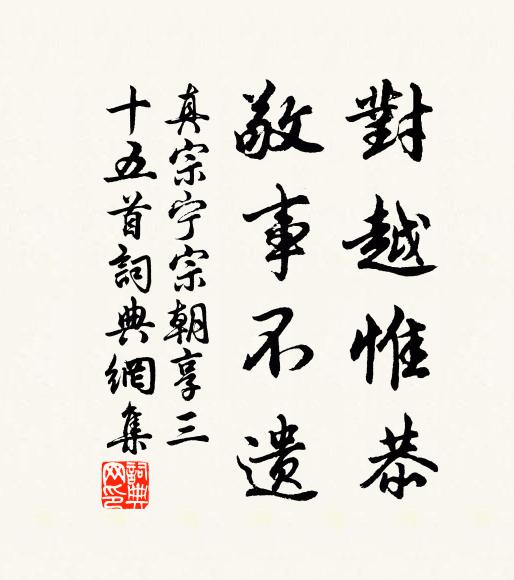 對越惟恭
敬事不遺
真宗宁宗朝享三
十五首詞典網集
詞典
网印